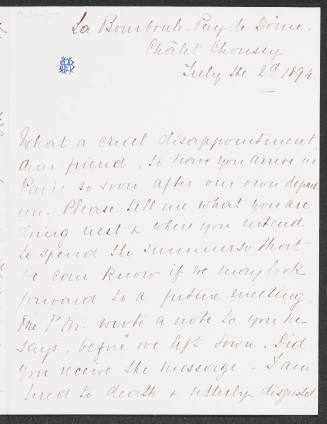 La Bourboule. Puy de Dôme.
Châlet Choussy
July the 2d 1894
What a cruel disappointment,
dear friend, to have you arrive in
Paris so soon after our own depart
ure. Please tell me what you are
doing next & where you intend
to spend the summer so that
we can know if we may look
forward to a future meeting.
The wrote a note to you he
says, before we left town. Did
you receive the message. I am
tired to death & utterly disgusted